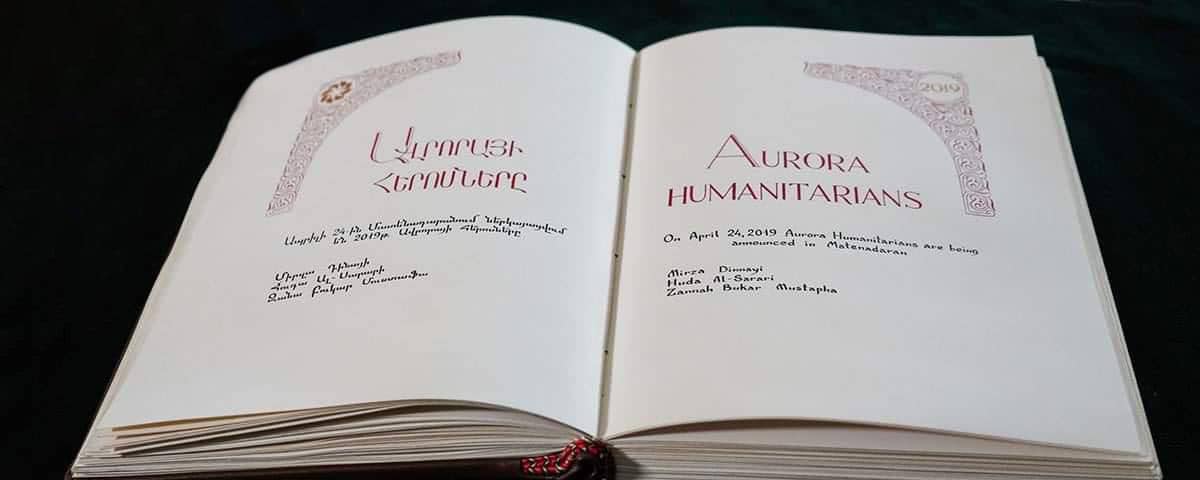 ԱՎՐՈՐԱՅԻ
ՀԵՐՈՍՆԵՐԸ
Ապրիլի 24-ին Մատենադարանում ներկայացվում
են 2019թ. Ավրորայի Հերոսները
Միրզա Դինայի
Հուդա Ալ-Սարարի
Զաննա Բուկար Մուստաֆա
2019
AURORA
HUMANITARIANS
On April 24, 2019 Aurora Humanitarians are being
announced in Matenadaran
Mirza Dinnayi
Huda Al-Sarari
Zannah Bukar Mustapha